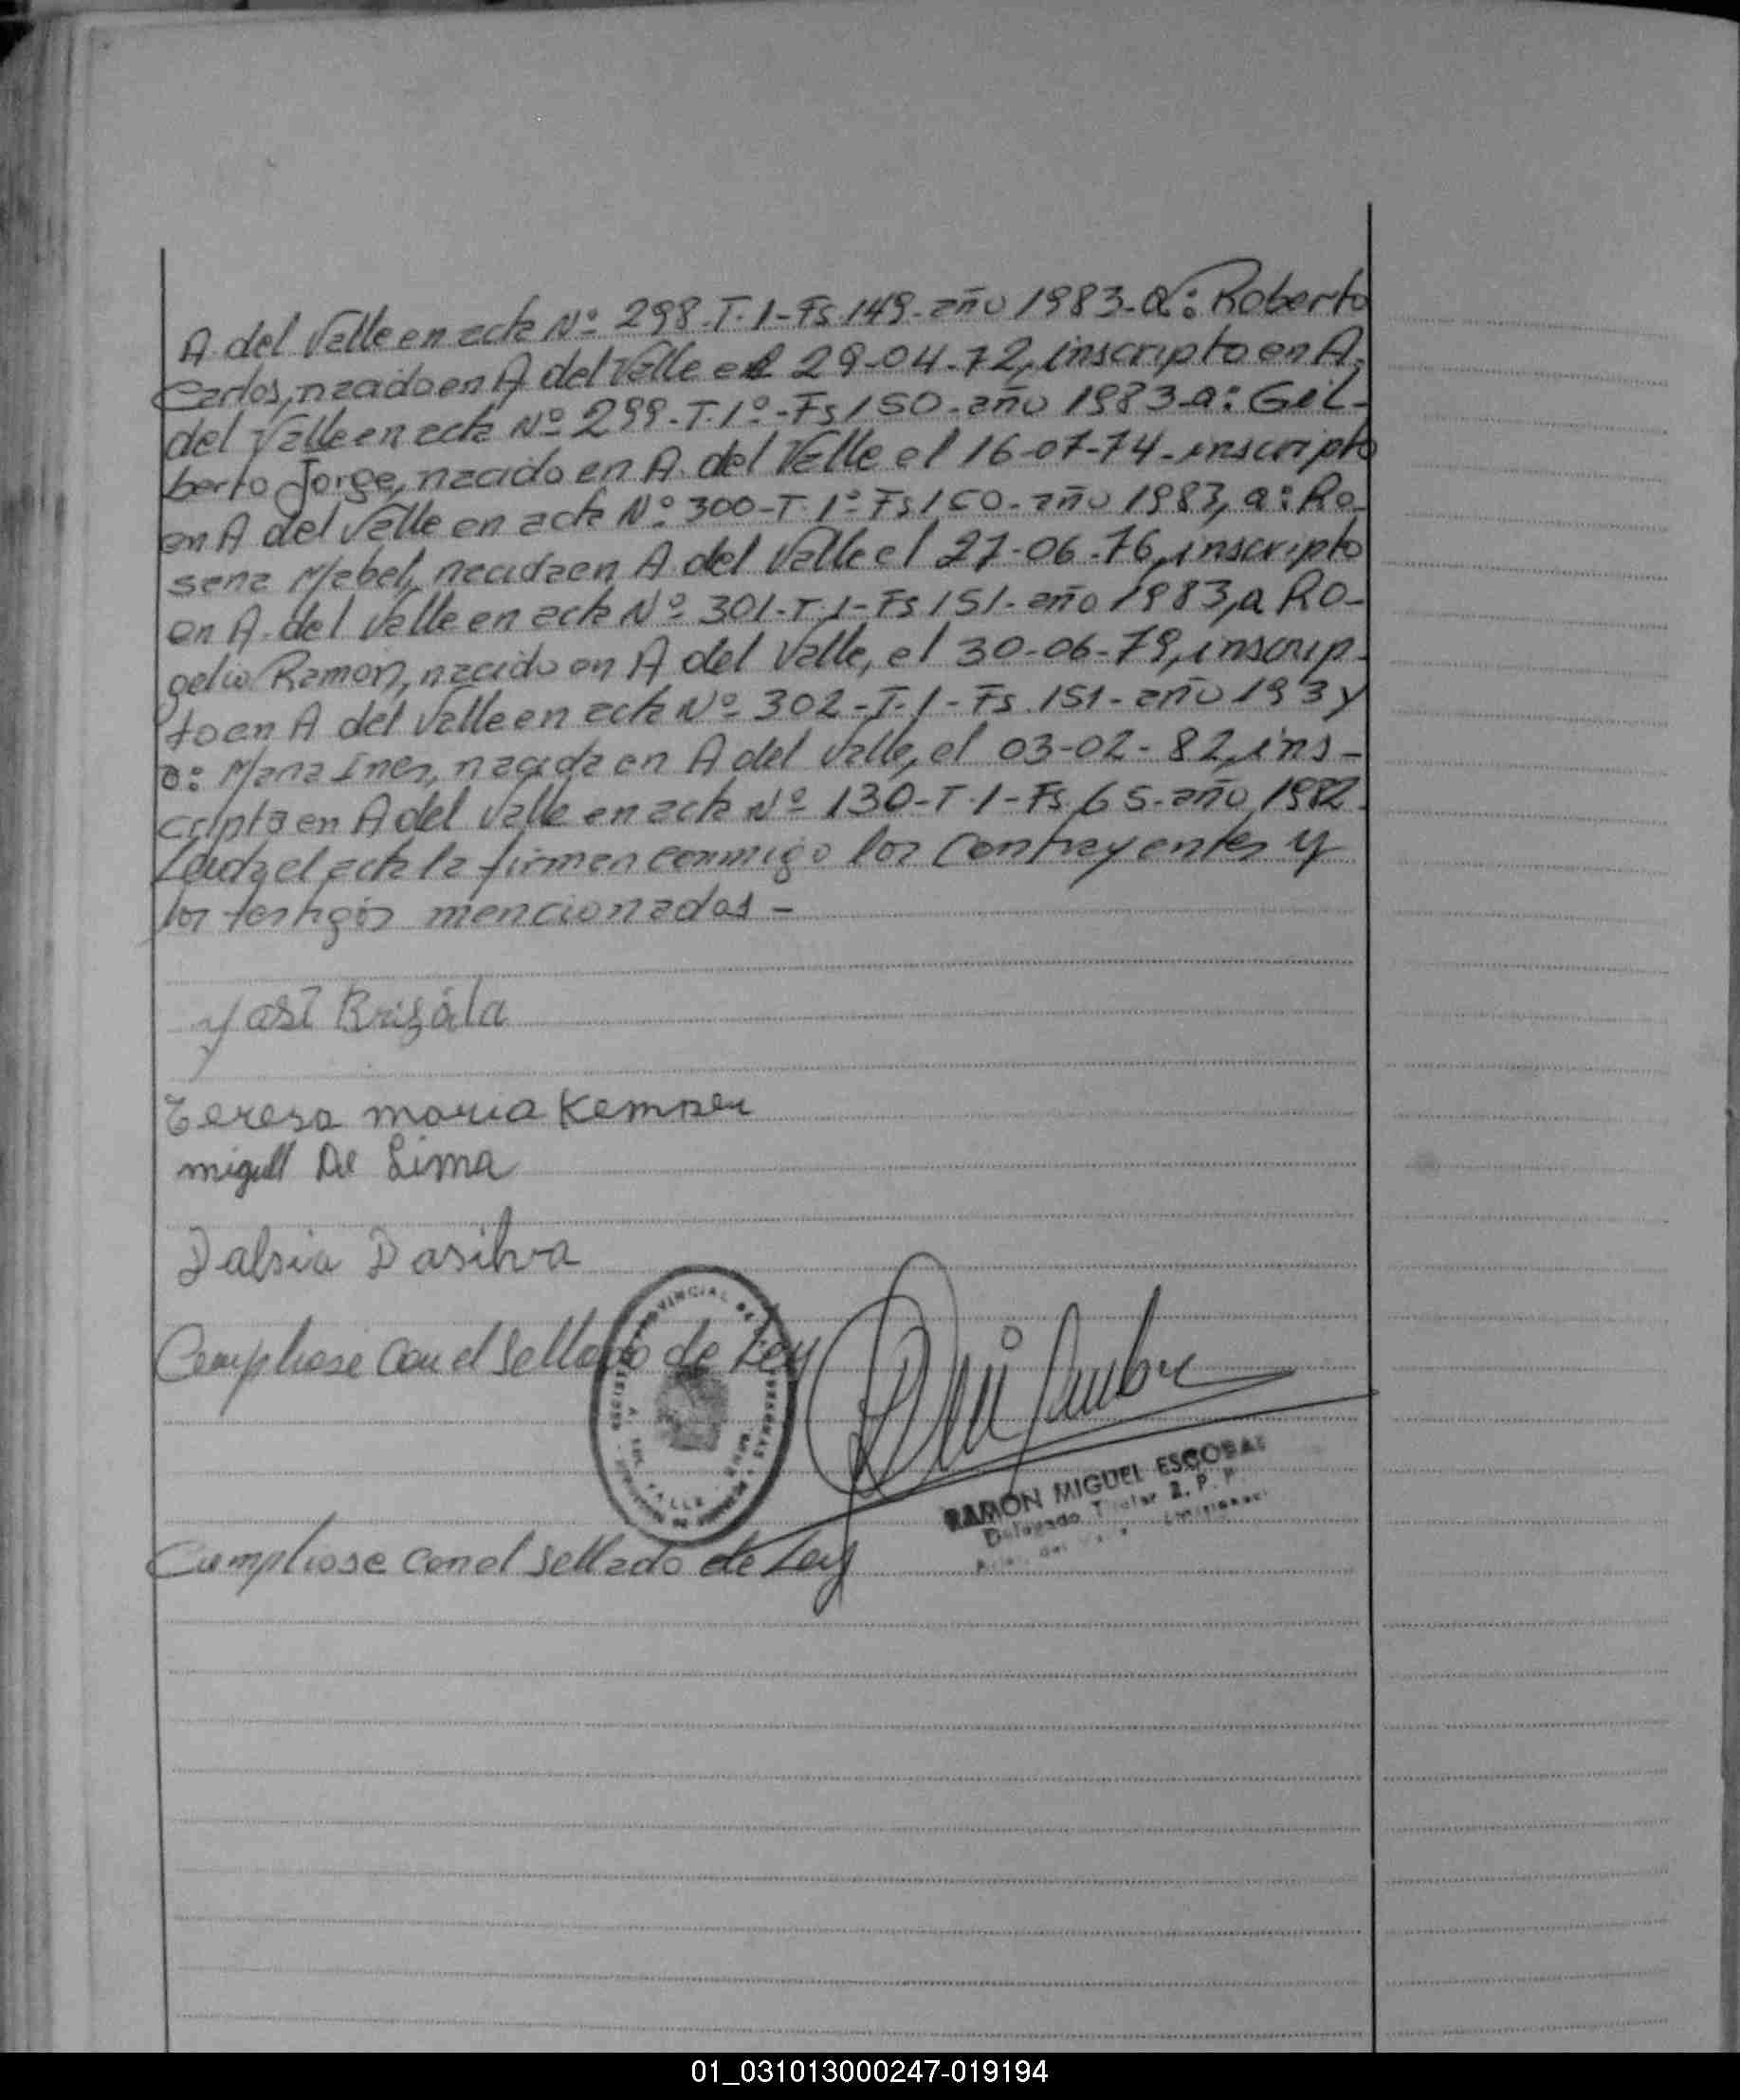 A. del Valle en acta Nº 298-T.1-Fs 149-año 1983-a: Roberto
Carlos, nacido en A del Valle el 29-04-72, inscripto en A.
del Valle en acta Nº 299-T.1º-Fs 150-año 1983-a: Gil-
berto Jorge, nacido en A. del Valle el 16-07-74-inscripto
en A del Valle en acta Nº 300-T.1º-Fs 150-año 1983, a: Ro-
sana Mabel, nacida en A. del Valle el 27-06-76, inscripto
en A. del Valle en acta Nº 301-T.1-Fs 151-año 1983, a Ro-
gelio Ramon, nacido en A del Valle, el 30-06-79, inscrip-
to en A del Valle en acta Nº 302-T.1-Fs. 151-año 193 y
a: Maria Ines, nacida en A del Valle, el 03-02-82, ins-
cripta en A del Valle en acta Nº 130-T.1-Fs 65-año 1982.
Leida el acta la firman conmigo los contrayentes y
los testigos mencionados-
Teresa maria Kemper
miguel De Lima
Dasilva
Cumpliose con el Sellado de Ley
RAMON MIGUEL ESCOBAR
Delegado Titular R. P. P.
Cumpliose con el sellado de Ley
01_031013000247-019194